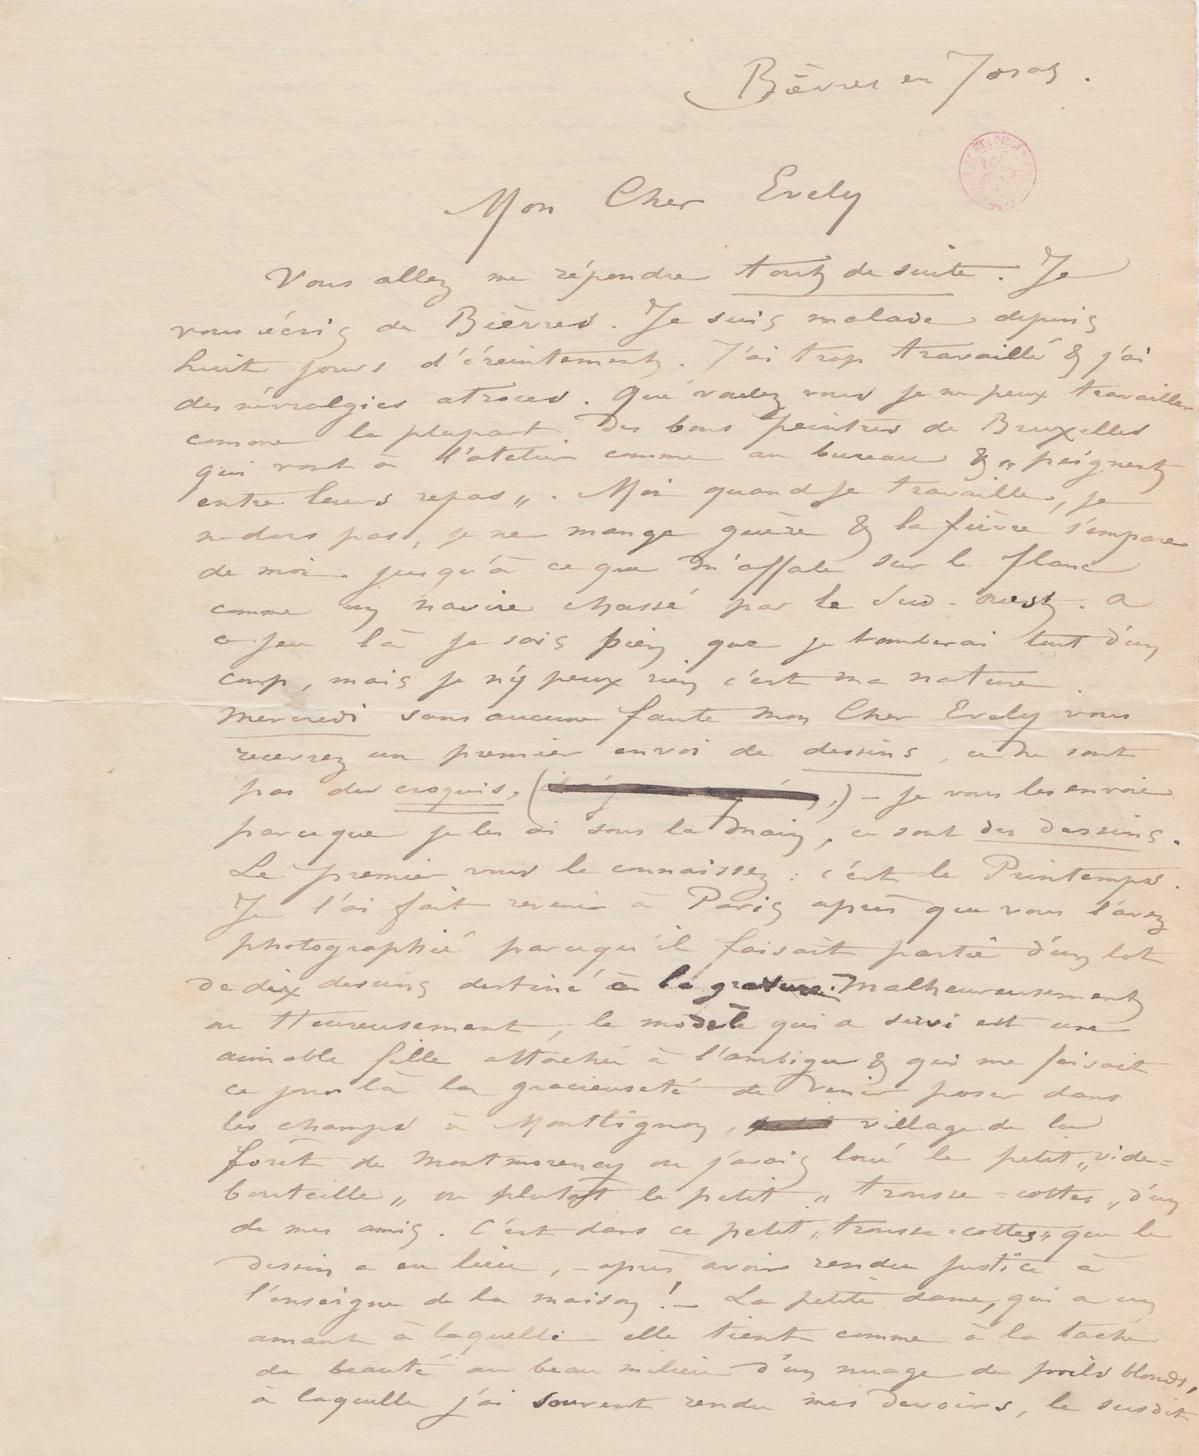 Bièvres en Josas.
Mon Cher Evely
Vous allez me répondre tout de suite. Je
vous écris de Bièvres. Je suis malade depuis
huit jours d'éreintement. J'ai trop travaillé & j'ai
des névralgies atroces. Que voulez vous je ne peux travailler
comme la plupart des bons peintres de Bruxelles
qui vont à l'atelier comme au bureau & „peignent
entre leurs repas„. Moi quand je travaille, je
ne dors pas, je ne mange guère & la fièvre s'empare
de moi jusqu'à ce que m'affale sur le flanc
comme un navire chassé par le Sud-ouest. A
ce jeu là je sais bien que je tomberai tout d'un
coup, mais je n'y peux rien c'est ma nature.
Mercredi sans aucune faute mon Cher Evely vous
recevrez un premier envoi de dessins, ce ne sont
pas des croquis, ( ,) – je vous les envoie
parceque je les ai sous la main, ce sont des dessins.
Le premier vous le connaissez: c'est le Printemps.
Je l'ai fait revenir à Paris après que vous l'avez
photographié parcequ'il faisait partie d'un lot
de dix dessins destiné à la gravure. Malheureusement
ou Heureusement, le modèle qui a servi est une
aimable fille attachée à l'ambigu & qui me faisait
ce jour là la gracieuseté de venir poser dans
les champs à Montlignon, village de la
forêt de Montmorency ou j'avais loué le petit „vide=
bouteille„ ou plutôt le petit „trousse=cottes„ d'un
de mes amis. C'est dans ce petit „trousse=cottes„ que le
dessin a eu lieu, – après avoir rendu justice à
l'enseigne de la maison! – La petite dame, qui a un
amant à laquelle elle tient comme à la tache
de beauté au beau milieu d'un nuage de poils blonds,
à laquelle j'ai souvent rendu mes devoirs, le susdit